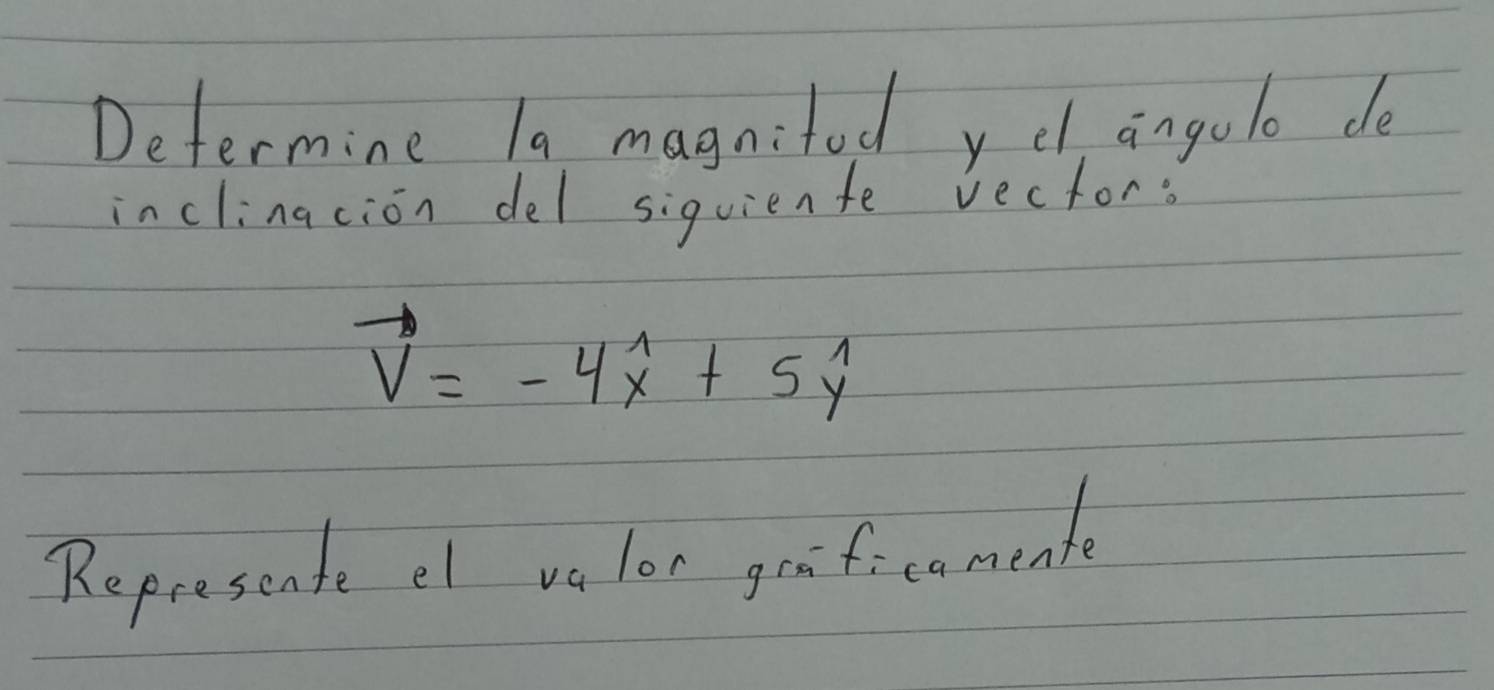 Determine la magnitud y el ángulo de
inclinación del siguiente vector:
V⃗ = -4x̂ + 5ŷ
Represente el valor gráficamente